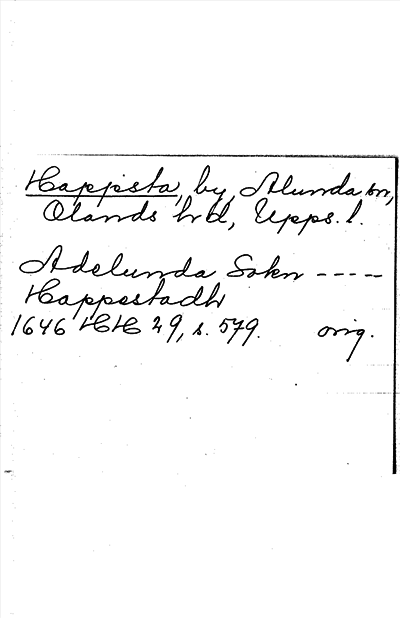 Happsta, by, Alunda sn,
Olands hd, Upps. l.
Adelunda Sokn -----
Happestadh
1646 HH 29, s. 579. orig.